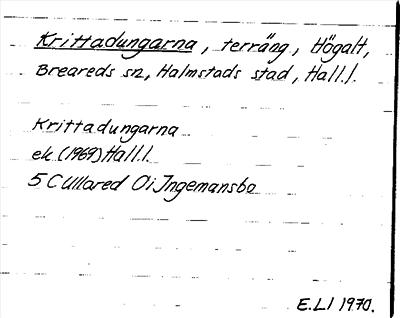 Krittadungarna, terräng, Högalt,
Breareds sn, Halmstads stad, Hall.l.
Krittadungarna
ek. (1969) Hall.l.
5C Ullared Öi Ingemansbo
E.Ll 1970.